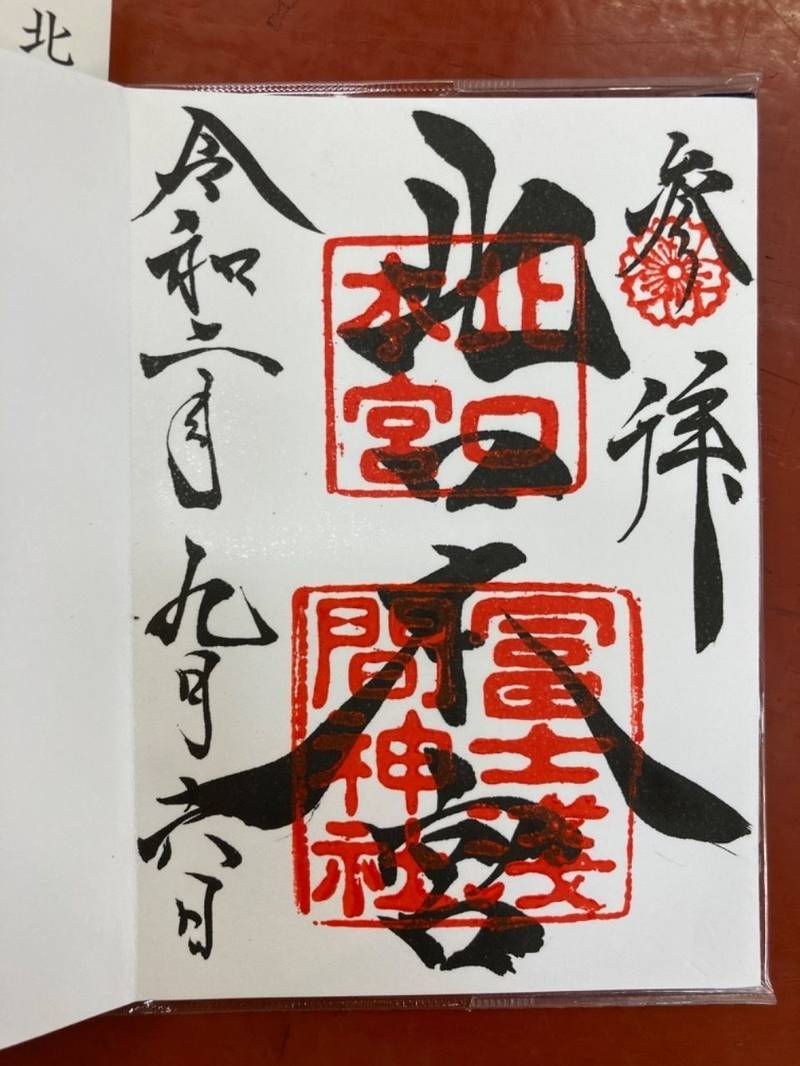 北
参拝
北口本宮
北口
本宮
冨士淺
間神社
令和二年九月六日